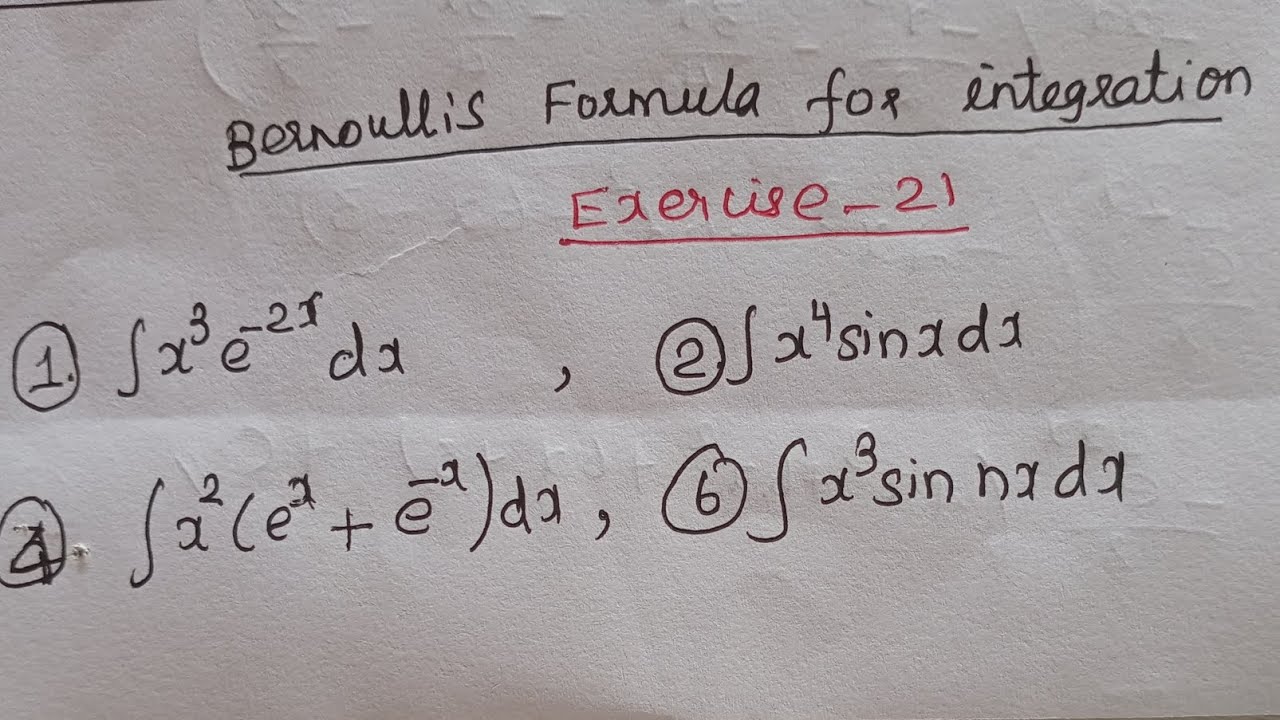 Bernoullis Formula for integration
Exercise-21
①. ∫x³e⁻²ˣdx , ② ∫x⁴sinxdx
④. ∫x²(eˣ + e⁻ˣ)dx, ⑥ ∫x³sin nxdx